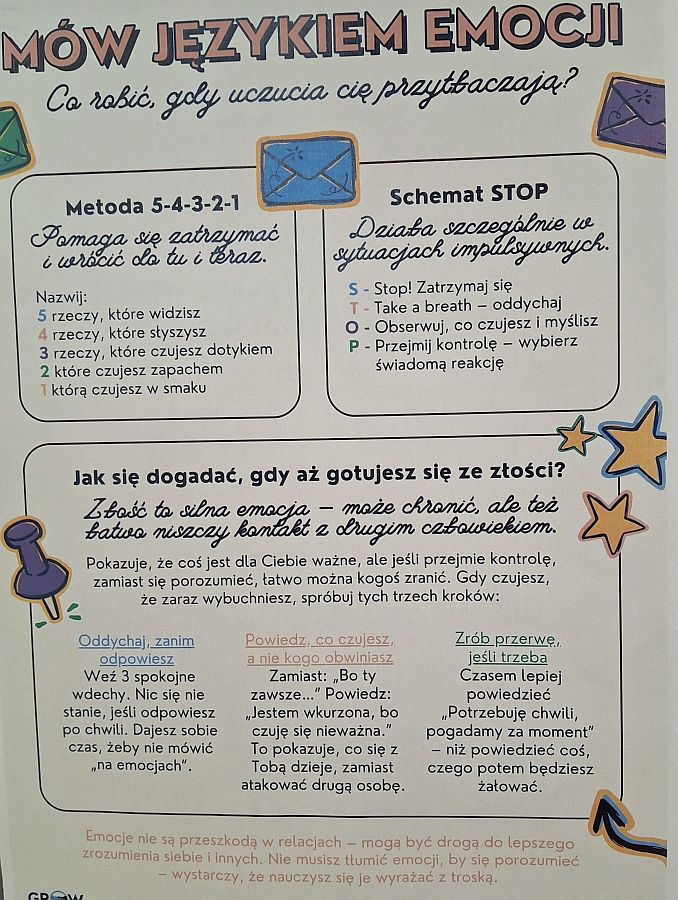 MÓW JĘZYKIEM EMOCJI
Co robić, gdy uczucia cię przytłaczają?
Metoda 5-4-3-2-1
Pomaga się zatrzymać
i wrócić do tu i teraz.
Nazwij:
5 rzeczy, które widzisz
4 rzeczy, które słyszysz
3 rzeczy, które czujesz dotykiem
2 które czujesz zapachem
1 którą czujesz w smaku
Schemat STOP
Działa szczególnie w
sytuacjach impulsywnych.
S - Stop! Zatrzymaj się
T - Take a breath – oddychaj
O - Obserwuj, co czujesz i myślisz
P - Przejmij kontrolę – wybierz
świadomą reakcję
Jak się dogadać, gdy aż gotujesz się ze złości?
Złość to silna emocja – może chronić, ale też
łatwo niszczy kontakt z drugim człowiekiem.
Pokazuje, że coś jest dla Ciebie ważne, ale jeśli przejmie kontrolę,
zamiast się porozumieć, łatwo można kogoś zranić. Gdy czujesz,
że zaraz wybuchniesz, spróbuj tych trzech kroków:
Oddychaj, zanim
odpowiesz
Weź 3 spokojne
wdechy. Nic się nie
stanie, jeśli odpowiesz
po chwili. Dajesz sobie
czas, żeby nie mówić
„na emocjach”.
Powiedz, co czujesz,
a nie kogo obwiniasz
Zamiast: „Bo ty
zawsze...” Powiedz:
„Jestem wkurzona, bo
czuję się nieważna.”
To pokazuje, co się z
Tobą dzieje, zamiast
atakować drugą osobę.
Zrób przerwę,
jeśli trzeba
Czasem lepiej
powiedzieć
„Potrzebuję chwili,
pogadamy za moment”
– niż powiedzieć coś,
czego potem będziesz
żałować.
Emocje nie są przeszkodą w relacjach – mogą być drogą do lepszego
zrozumienia siebie i innych. Nie musisz tłumić emocji, by się porozumieć
– wystarczy, że nauczysz się je wyrażać z troską.
GROW